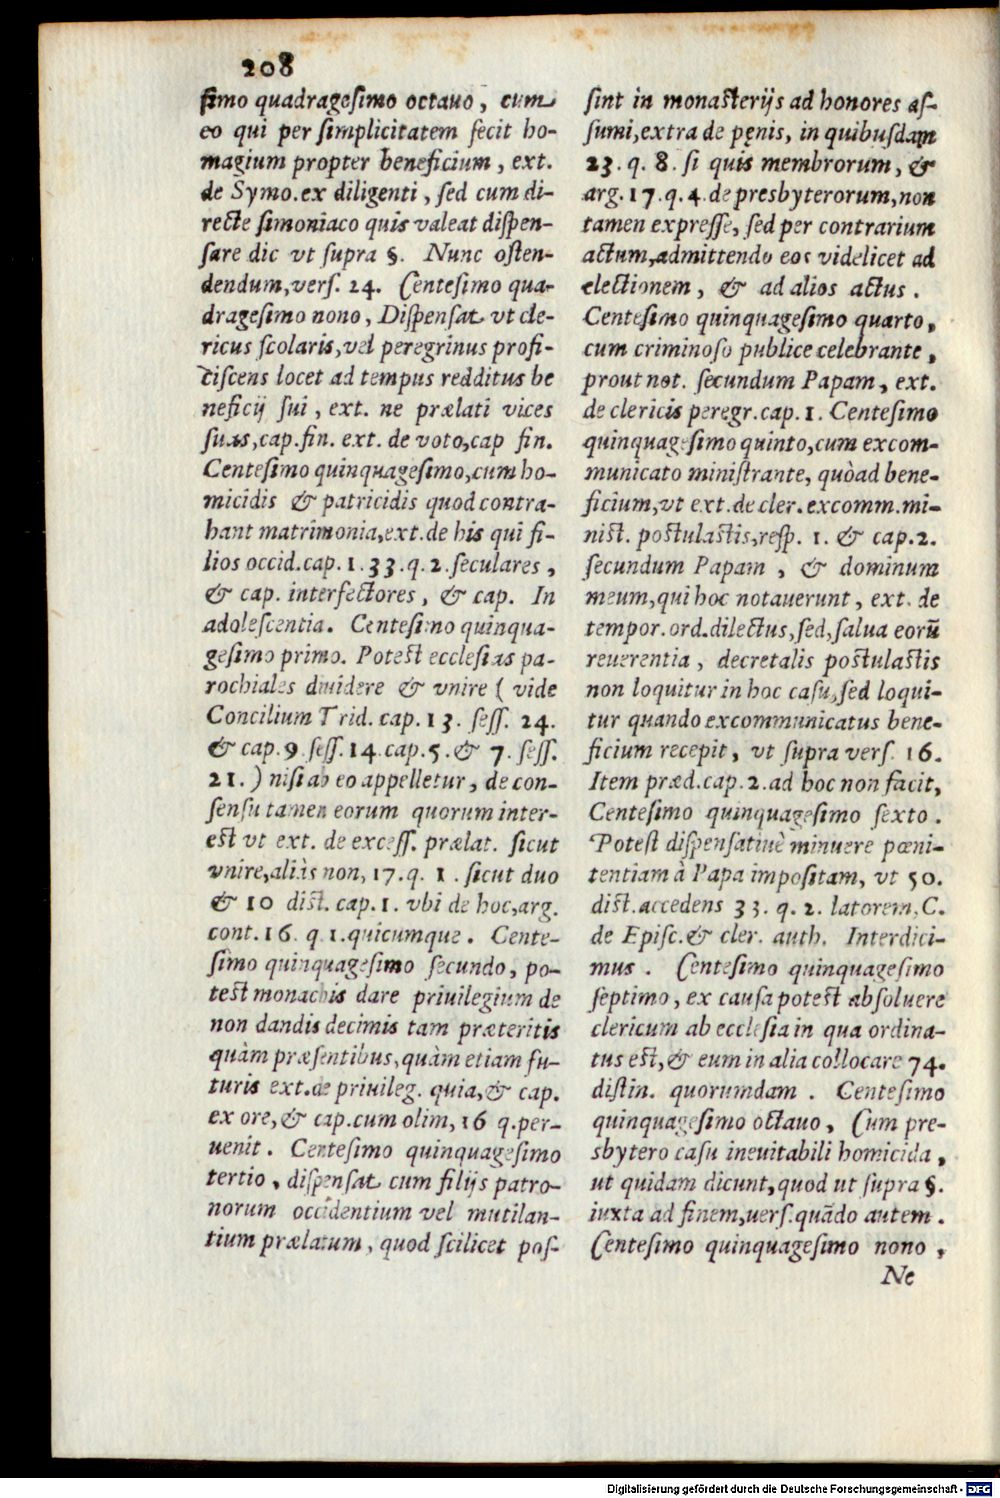 208
ſimo quadrageſimo octauo, cum
eo qui per ſimplicitatem fecit ho-
magium propter beneficium, ext.
de Symo. ex diligenti, ſed cum di-
recte ſimoniaco quis valeat diſpen-
ſare dic vt ſupra §. Nunc oſten-
dendum, verſ. 24. Centeſimo qua-
drageſimo nono, Diſpenſat vt cle-
ricus ſcolaris, vel peregrinus profi-
ciſcens locet ad tempus redditus be
neficij ſui, ext. ne prælati vices
ſuas, cap. fin. ext. de voto, cap fin.
Centeſimo quinquageſimo, cum ho-
micidis & patricidis quod contra-
hant matrimonia, ext. de his qui fi-
lios occid. cap. 1. 33. q. 2. ſeculares,
& cap. interfectores, & cap. In
adoleſcentia. Centeſimo quinqua-
geſimo primo. Poteſt eccleſias pa-
rochiales diuidere & vnire ( vide
Concilium Trid. cap. 13. ſeſſ. 24.
& cap. 9. ſeſſ. 14. cap. 5. & 7. ſeſſ.
21. ) niſi ab eo appelletur, de con-
ſenſu tamen eorum quorum inter-
eſt vt ext. de exceſſ. prælat. ſicut
vnire, aliàs non, 17. q. 1. ſicut duo
& 10 diſt. cap. 1. vbi de hoc, arg.
cont. 16. q. 1. quicumque. Cente-
ſimo quinquageſimo ſecundo, po-
teſt monachis dare priuilegium de
non dandis decimis tam præteritis
quàm præſentibus, quàm etiam fu-
turis ext. de priuileg. quia, & cap.
ex ore, & cap. cum olim, 16 q. per-
uenit. Centeſimo quinquageſimo
tertio, diſpenſat cum filijs patro-
norum occidentium vel mutilan-
tium prælatum, quod ſcilicet poſ-
ſint in monaſterijs ad honores aſ-
ſumi, extra de pęnis, in quibuſdam
23. q. 8. ſi quis membrorum, &
arg. 17. q. 4. de presbyterorum, non
tamen expreſſe, ſed per contrarium
actum, admittendo eos videlicet ad
electionem, & ad alios actus.
Centeſimo quinquageſimo quarto,
cum criminoſo publice celebrante,
prout not. ſecundum Papam, ext.
de clericis peregr. cap. 1. Centeſimo
quinquageſimo quinto, cum excom-
municato miniſtrante, quòad bene-
ficium, vt ext. de cler. excomm. mi-
niſt. poſtulaſtis, reſp. 1. & cap. 2.
ſecundum Papam, & dominum
meum, qui hoc notauerunt, ext. de
tempor. ord. dilectus, ſed, ſalua eorũ
reuerentia, decretalis poſtulaſtis
non loquitur in hoc caſu, ſed loqui-
tur quando excommunicatus bene-
ficium recepit, vt ſupra verſ. 16.
Item præd. cap. 2. ad hoc non facit,
Centeſimo quinquageſimo ſexto.
Poteſt diſpenſatiuè minuere pœni-
tentiam à Papa impoſitam, vt 50.
diſt. accedens 33. q. 2. latorem, C.
de Epiſc. & cler. auth. Interdici-
mus. Centeſimo quinquageſimo
ſeptimo, ex cauſa poteſt abſoluere
clericum ab eccleſia in qua ordina-
tus eſt, & eum in alia collocare 74.
diſtin. quorumdam. Centeſimo
quinquageſimo octauo, Cum pre-
sbytero caſu ineuitabili homicida,
ut quidam dicunt, quod ut ſupra §.
iuxta ad finem, uerſ. quãdo autem.
Centeſimo quinquageſimo nono,
Ne
Digitalisierung gefördert durch die Deutsche Forschungsgemeinschaft - DFG